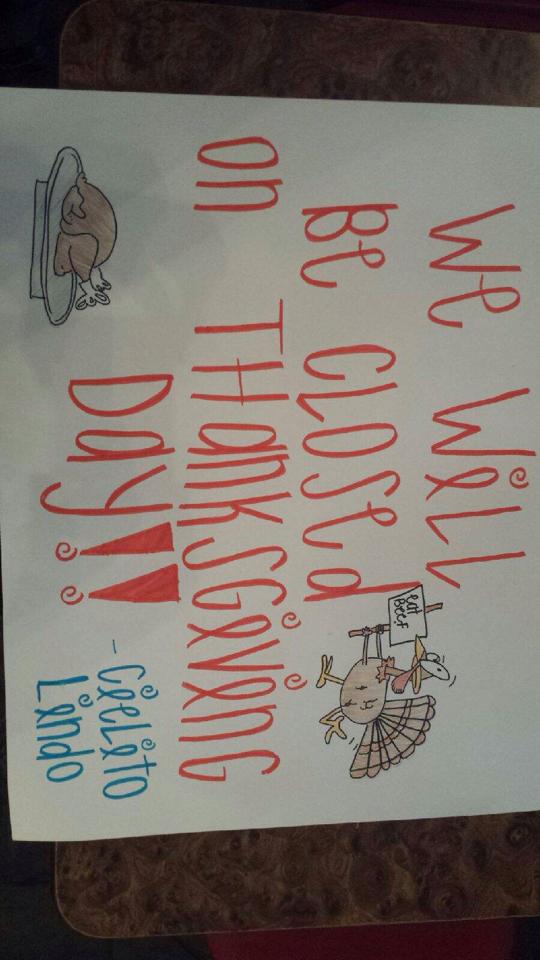 We Will
Be CLOSed
On THanKSGiVinG
Day!!
-CieLito
Lindo
eat
Beef